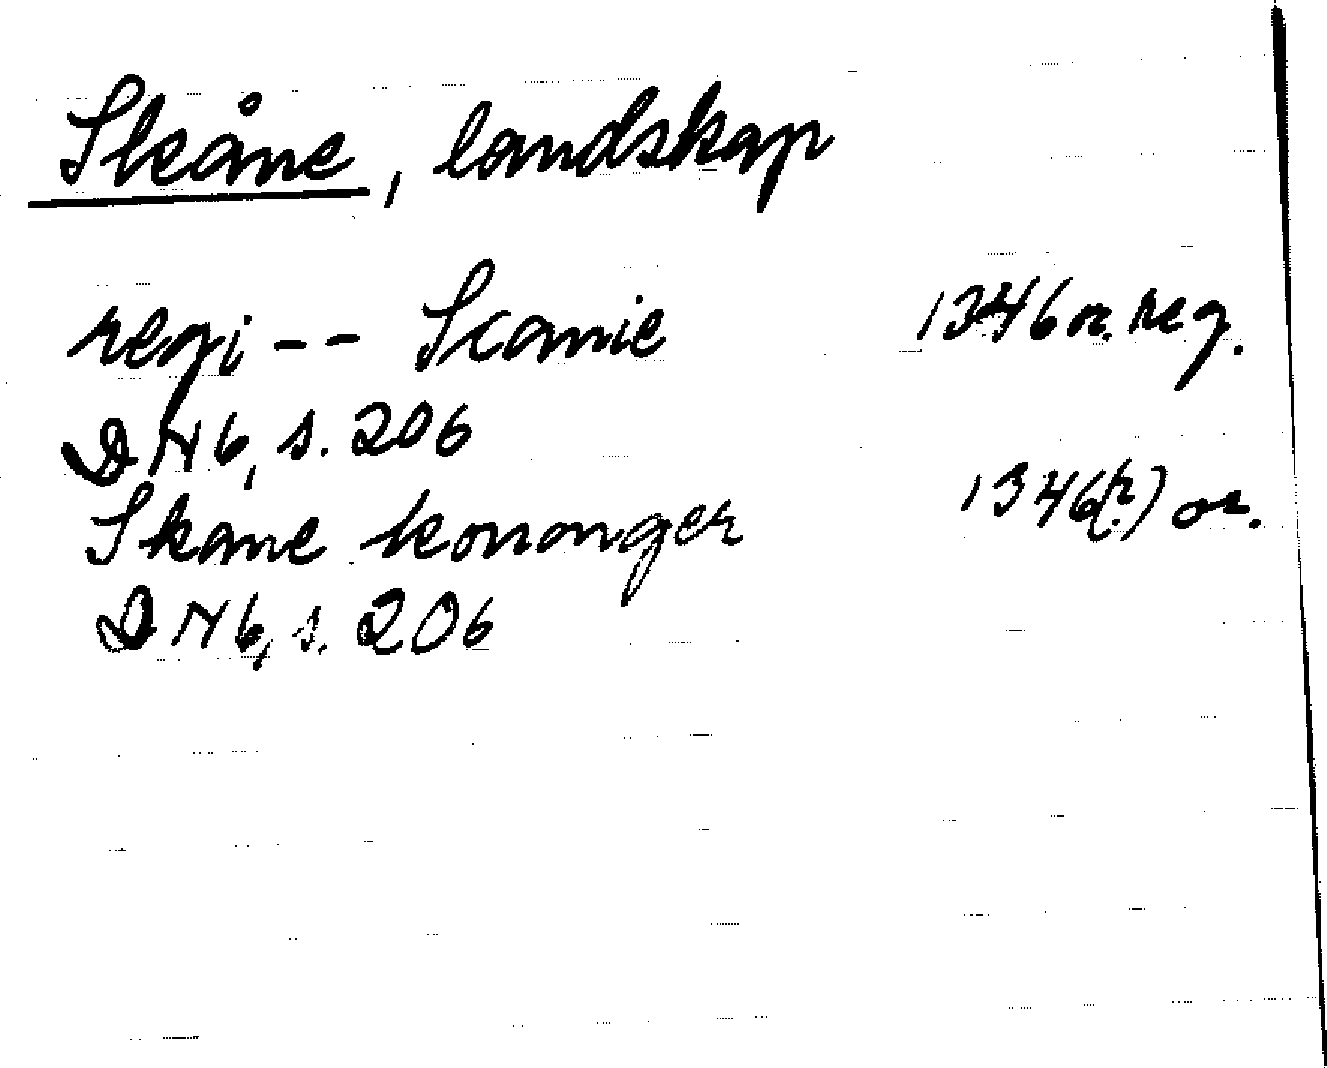 Skåne, landskap
regi -- Scanie 1346 or. reg.
DN6, s. 206
Skane kononger 1346(?) or.
DN6, s. 206